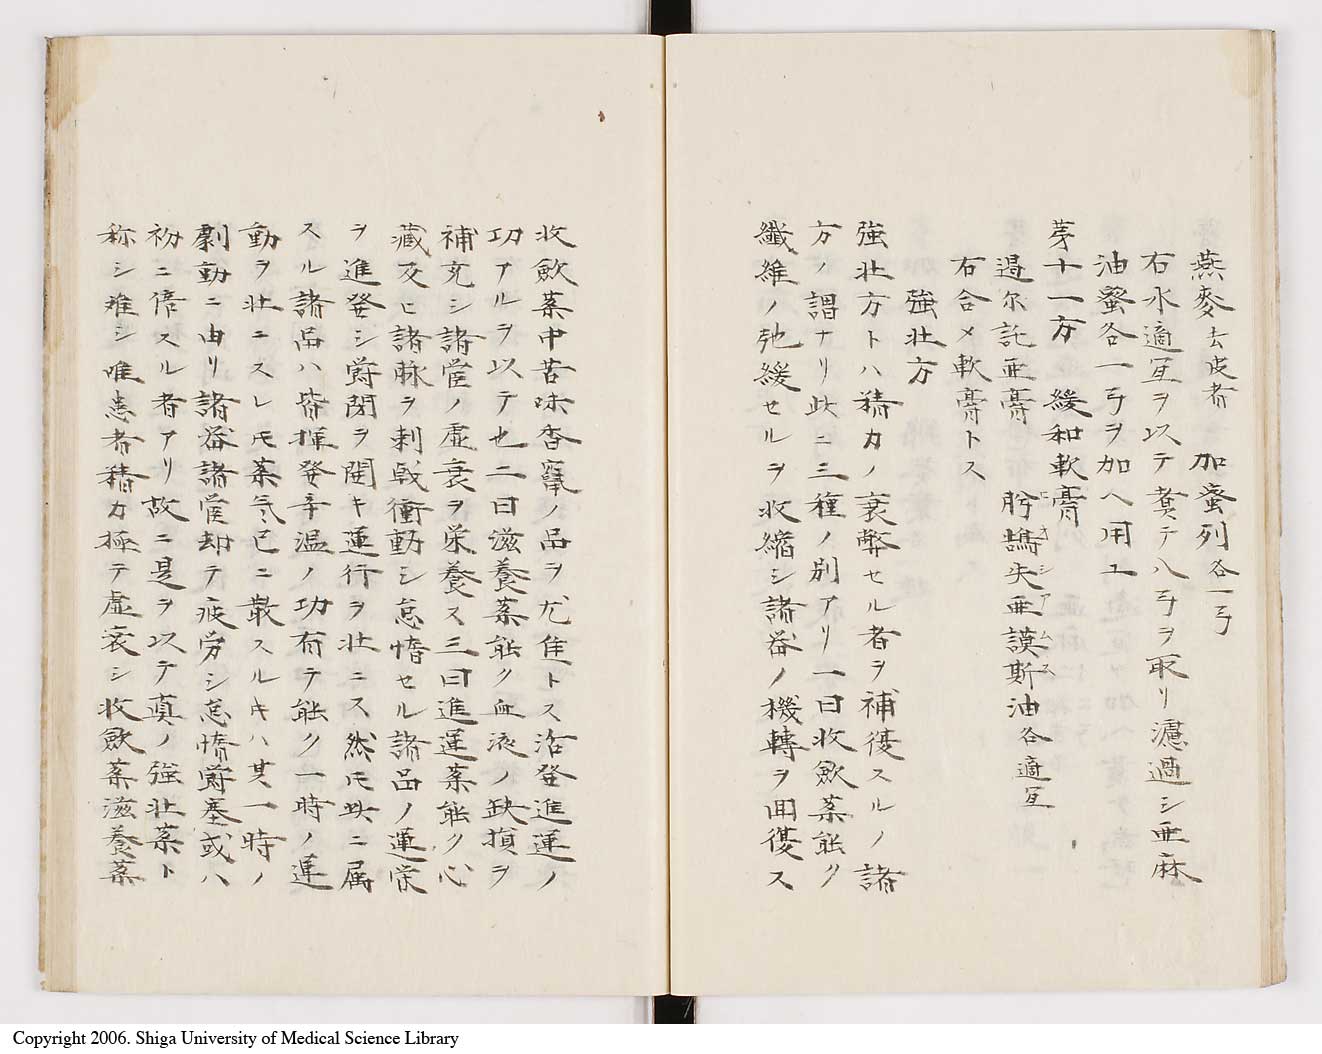 燕麥去皮者 加蜜列各一弓
右水適宜ヲ以テ煑テ八弓ヲ取リ濾過シ亜麻
油蜜各一弓ヲ加ヘ用ユ
茅十一方 緩和軟膏
過尓託亜膏 肹鴶失亜謨斯油各適宜
右合メ軟膏トス
強壮方
強壮方トハ精力ノ衰弊セル者ヲ補復スルノ諸
方ノ謂ナリ此ニ三種ノ別アリ一曰收歛藥能ク
纖維ノ弛緩セルヲ收縮シ諸器ノ機轉ヲ囬復ス
收歛藥中苦味香竄ノ品ヲ尤佳トス治發進運ノ
功アルヲ以テ也二曰滋養藥能ク血液ノ缺損ヲ
補充シ諸管ノ虚衰ヲ栄養ス三曰進運藥能ク心
藏及ヒ諸脉ヲ刺戟衝動シ怠惰セル諸品ノ運営
ヲ進發シ欝閉ヲ開キ運行ヲ壮ニス然𪜈此ニ属
スル諸品ハ皆揮發辛温ノ功有テ能ク一時ノ運
動ヲ壮ニスレ𪜈藥氣已ニ散スルキハ其一時ノ
劇動ニ由リ諸器諸管却テ疲労シ怠惰欝塞或ハ
初ニ倍スル者アリ故ニ是ヲ以テ真ノ強壮藥ト
称シ难シ唯患者精力極テ虚衰シ收歛藥滋養藥
Copyright 2006. Shiga University of Medical Science Library